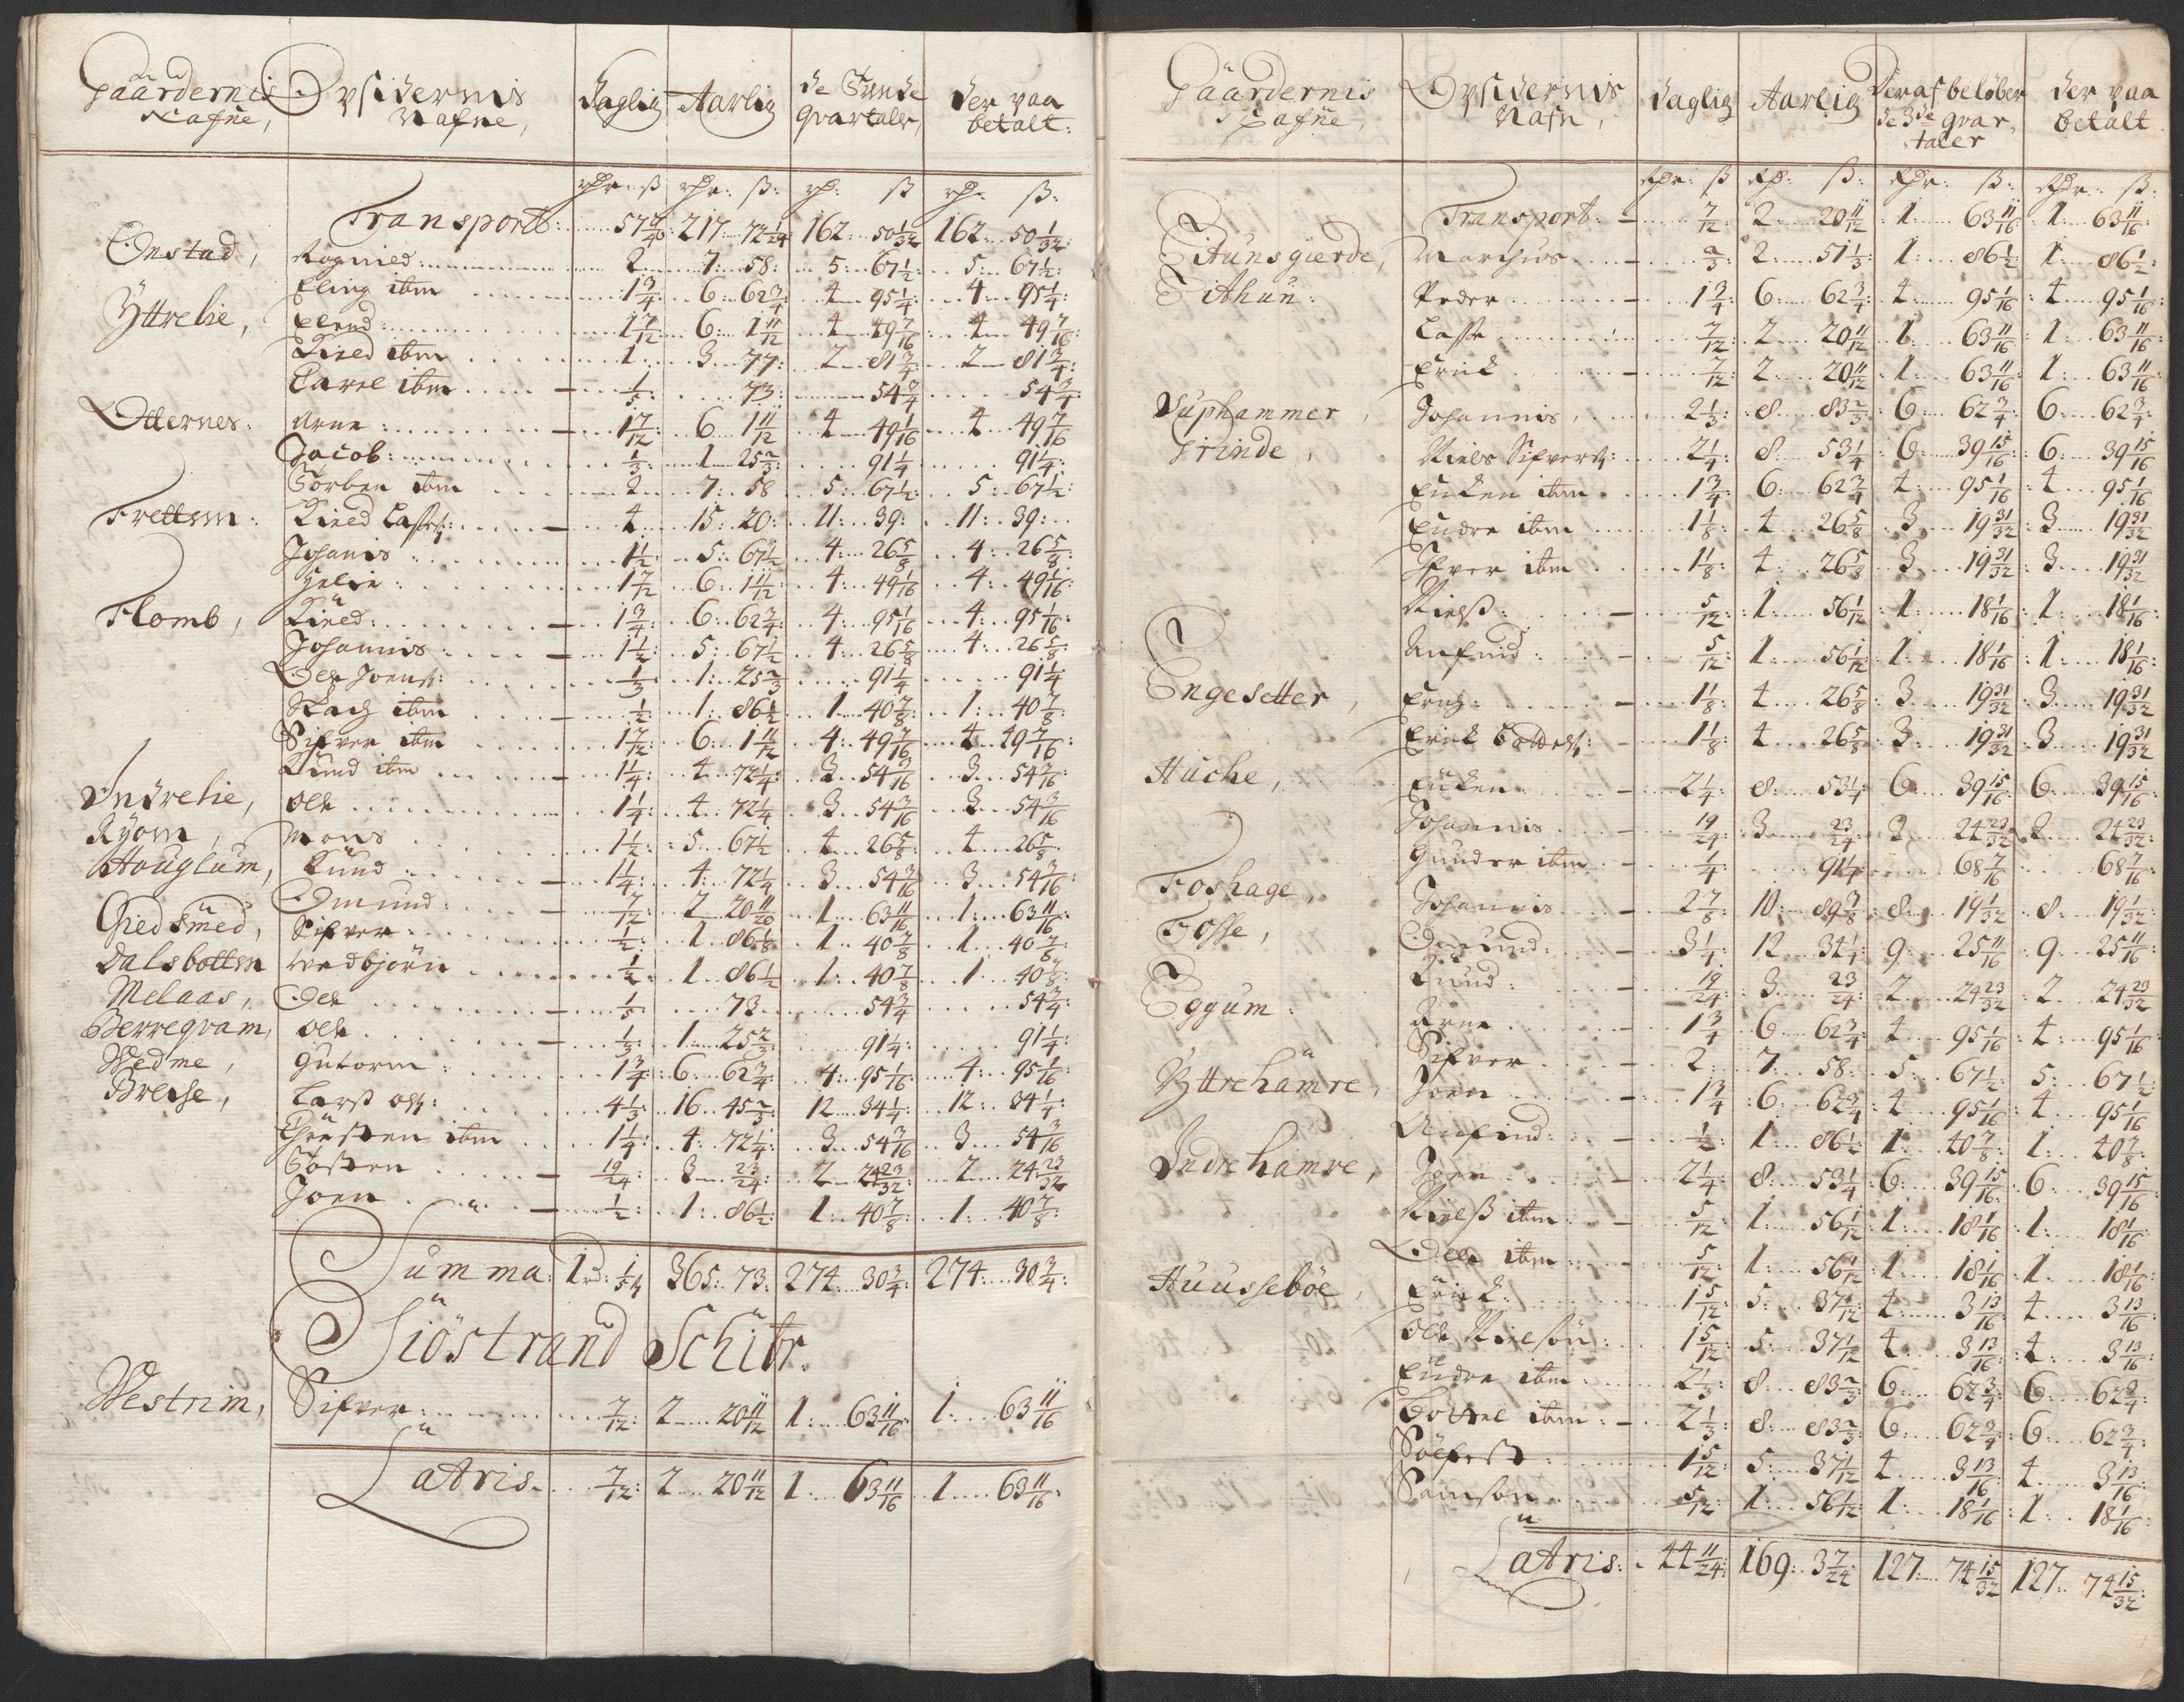 Gaardernis Nafne, Opsidernis Nafne, Daglig Aarlig de Trende qvartaler, Der paa betalt:
rdr: ß rdr: ß: rd: ß rd: ß:
Transport: 57 217: 72 1/24 162: 50 1/32 162: 50 1/32:
Onstad, Ragnied: 2 7: 58: 5: 67 1/2: 5: 67 1/2:
Eling ibm 1 3/4: 6: 62 3/4: 4 95 1/4: 4 95 1/4:
Yttrelie, Elend: 1 7/12 6: 1 11/12 4 49 7/16: 4 49 7/16:
Kied ibm 1: 3: 77: 2 81 3/4: 2 81 3/4:
Larel ibm 1/5: 73: 54 3/4 54 3/4:
Otternes: Arne: 1 7/12: 6 1 11/12 4 49 1/16 4 49 7/16
Jacob: 1/3: 1 25 2/3: 91 1/4 91 1/4:
Torben ibm 2 7: 58 5: 67 1/2: 5: 67 1/2:
Frettem: Kied Lasses: 4 15: 20: 11: 39: 11: 39:
Johanis 1 1/2: 5: 67 1/2 4: 26 5/8 4: 26 5/8:
Helie: 1 7/12 6: 1 11/12 4: 49 1/16 4: 49 1/16:
Flomb, Kied: 1 3/4: 6: 62 3/4: 4: 95 1/16 4: 95 1/16:
Johannis 1 1/2: 5: 67 1/2 4: 26 5/8 4: 26 5/8:
Ole Joens: 1/3: 1: 25 2/3 91 1/4 91 1/4:
ibm 1/2: 1: 86 1/2 1 40 7/8 1: 40 7/8:
Sifver ibm 1 7/12: 6: 1 11/12 4: 49 7/16 4 49 7/16:
Kund ibm 1 1/4: 4 72 1/4: 3 54 3/16 3 54 3/16:
Indrelie, Ole 1 1/4: 4 72 1/4 3 54 3/16 3 54 3/16
Ryom, Mons 1 1/2: 5 67 1/2 4 26 5/8 4 26 5/8
Houglum, Kund 1 1/4: 4: 72 1/4 3 54 3/16 3 54 3/16:
Giedsmed, Omund: 7/12: 2 20 11/20 1 63 11/16 1: 63 11/16
Sifver: 1/2: 1 86 1/8 1 40 7/8 1 40 7/8
Dalsbottm Vedbjörn 1/2: 1 86 1/2 1: 40 7/8 1 40 7/8:
Melaas, Ole 1/5 73 54 3/4 54 3/4:
Berreqvam, Ole 1/3: 1 25 2/3 91 1/4: 91 1/4:
Wedme, Gutorm: 1 3/4: 6 62 3/4 4: 95 1/16: 4: 95 1/16:
Breise, Larß Ols: 4 1/3: 16 45 2/3: 12 34 1/4: 12: 34 1/4:
Christen ibm 1 1/4: 4: 72 1/4: 3 54 3/16 3 54 3/16
Tosten 19/24: 3 23/24: 2 24 23/32: 2 24 23/32
Joen 1/2: 1: 86 1/2: 1: 40 7/8: 1: 40 7/8:
Summa: 1rd: 1/5 ß 365: 73: 274 30 3/4: 274 30 3/4:
Siöstrand Schibr.
Westrim, Sifver: 7/12: 2 20 11/12 1: 63 11/16: 1: 63 11/16
Latris. 7/12: 2 20 11/12 1 63 11/16 1 63 11/16:
Gaardernis Nafne, Opsidernis Nafn, Daglig Aarlig Deraf beløber de 3de qvartaler Der paa betalt
rdr: ß rd: ß: rdr: ß: rdr: ß:
Transport: 7/12: 2 20 11/12: 1 63 11/16: 1: 63 11/16:
Eithunsgierde, Marchus 2/3: 2 51 1/3: 1: 86 1/2: 1: 86 1/2:
Eithun: Peder 1 3/4: 6: 62 3/4: 4 95 1/16: 4: 95 1/16:
Lasse 7/12: 2 20 11/12: 1: 63 11/16: 1: 63 11/16:
Erick 7/12: 2 20 11/12: 1: 63 11/16: 1: 63 11/16:
Suphammer, Johannis, 2 1/3: 8 83 2/3: 6: 62 3/4: 6: 62 3/4:
Grinde, Niels Sifvers: 2 1/4: 8 53 1/4: 6 39 15/16: 6: 39 15/16
Encken ibm 1 3/4: 6: 62 3/4 4 95 1/16: 4 95 1/16
Endre ibm 1 1/8: 4 26 5/8 3 19 31/32: 3 19 31/32
Ifver ibm 1 1/8: 4 26 5/8 3 19 31/32 3 19 31/32
Nielß 5/12: 1 56 1/12: 1 18 1/16: 1 18 1/16:
Anfind 5/12: 1 56 1/12: 1 18 1/16: 1: 18 1/16:
Engesetter, 1 1/8: 4 26 5/8: 3 19 31/32: 3: 19 31/32
Erick 1 1/8: 4 26 5/8: 3: 19 31/32: 3 19 31/32
Huche, Encken 2 1/4: 8: 53 1/4: 6: 39 15/16: 6: 39 15/16:
Johannis 19/24: 3 23/24: 2 24 23/32: 2 24 23/32:
Gunder ibm 1/4: 91 1/4: 68 7/16: 68 7/16
Foshage, Johannis 2 7/8: 10 89 3/8: 8 19 1/32: 8 19 1/32:
Fosse, Omund: 3 1/4: 12 34 1/4: 9: 25 11/16: 9 25 11/16:
Kund: 19/24: 3: 23/24: 2 24 23/32: 2 24 23/32
Eggum: Arne 1 3/4: 6 62 3/4: 4 95 1/16: 4: 95 1/16:
Sifver 2: 7 58: 5: 67 1/2: 5: 67 1/2:
Yttrehamre, Joen 1 3/4: 6 62 3/4: 4 95 1/16: 4 95 1/16
Anfind: 1/2: 1 86 1/2: 1 40 7/8: 1: 40 7/8:
Indrehamre, Joen 2 1/4: 8: 53 1/4: 6: 39 15/16: 6: 39 15/16:
Nielß ibm 5/12: 1 56 1/12: 1 18 1/16: 1: 18 1/16:
Ole ibm 5/12: 1: 56 1/12: 1 18 1/16: 1 18 1/16:
Huussebøe, Erick 1 5/12: 5: 37 1/12: 4 3 13/16: 4 3 13/16:
Ole Nielsön: 1 5/12: 5: 37 1/12 4 3 13/16: 4: 3 13/16:
Endre ibm 2 1/3: 8 83 2/3: 6 62 3/4: 6: 62 3/4:
Botel ibm: 2 1/3: 8: 83 2/3: 6 62 3/4: 6 62 3/4:
Sölfest 1 5/12: 5: 37 1/12: 4 3 13/16: 4 3 13/16:
Samson 5/12: 1: 56 1/12: 1: 18 1/16: 1: 18 1/16:
Latris: 44 11/24: 169: 3 7/24 127: 74 15/32 127: 74 15/32: